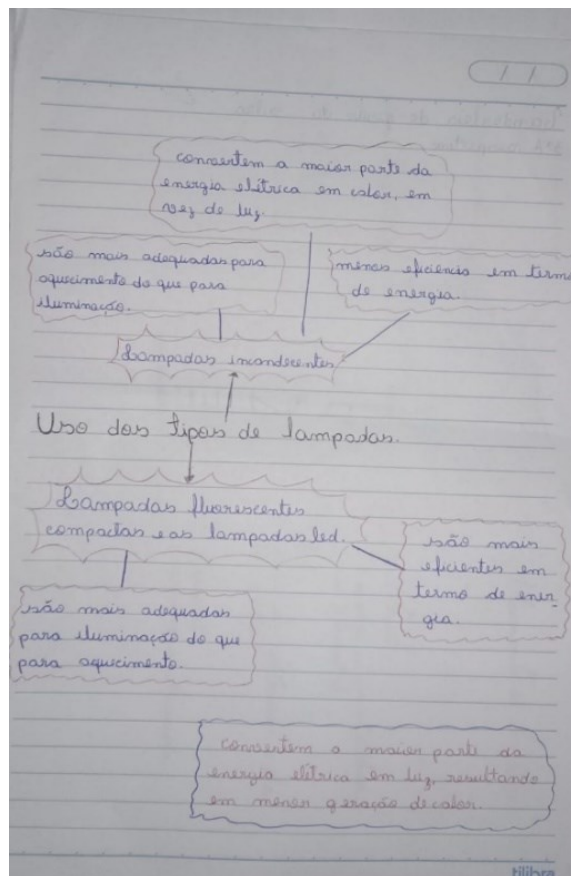 / /
convertem a maior parte da
energia elitrica em calor, em
vez de luz.
são mais adequadas para
aquecimento do que para
iluminação.
menos eficiencia em termo
de energia.
Lampadas incandecentes
Uso dos tipos de lampadas.
Lampadas fluorescentes
compactas e as lampadas led.
são mais
eficientes em
termo de ener-
gia.
são mais adequadas
para iluminação do que
para aquecimento.
convertem a maior parte da
energia elitrica em luz, resultando
em menor geração de calor.
tilibra